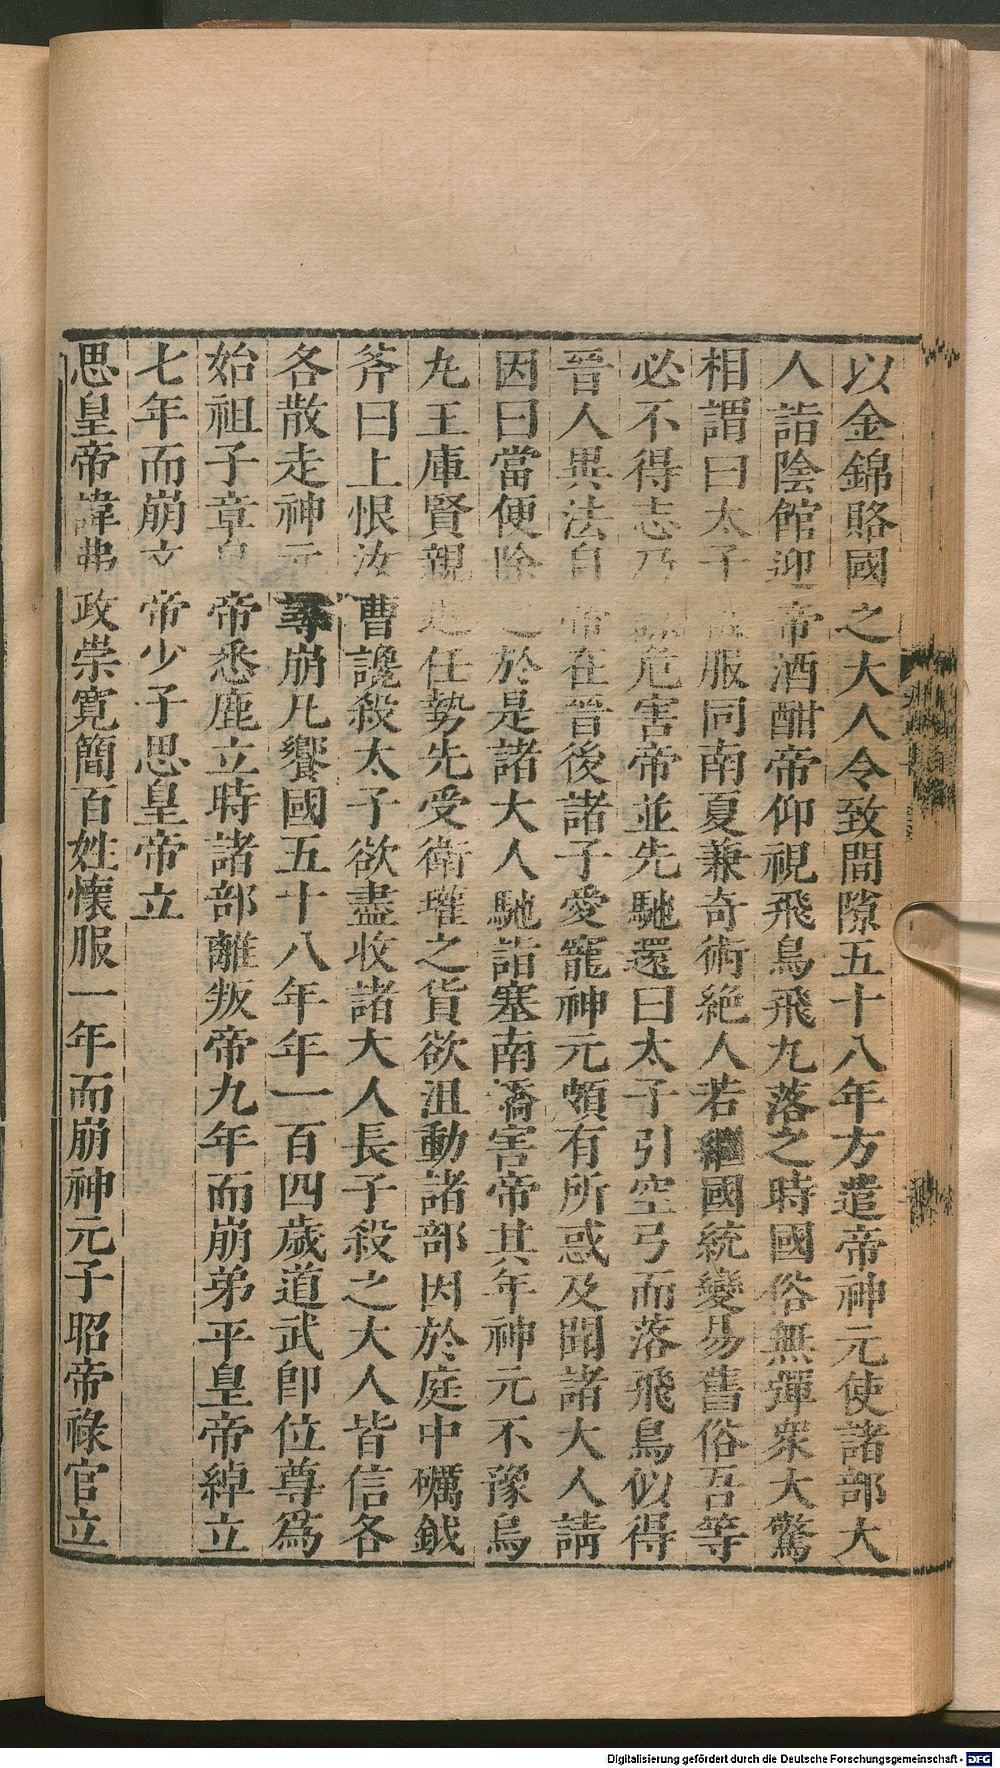 以金錦賂國之大人令致間隙五十八年方遣帝神元使諸部大
人詣陰館迎帝酒酣帝仰視飛鳥飛丸落之時國俗無彈衆大驚
相謂曰太子服同南夏兼奇術絶人若繼國統變易舊俗吾等
必不得志乃危害帝並先馳還曰太子引空弓而落飛鳥似得
晉人異法自帝在晉後諸子愛寵神元頗有所惑及聞諸大人請
因曰當便除之於是諸大人馳詣塞南矯害帝其年神元不豫烏
丸王庫賢親近任勢先受衛瓘之貨欲沮動諸部因於庭中礪鉞
斧曰上恨汝曹讒殺太子欲盡收諸大人長子殺之大人皆信各
各散走神元尋崩凡饗國五十八年年一百四歲道武卽位尊爲
始祖子章皇帝悉鹿立時諸部離叛帝九年而崩弟平皇帝綽立
七年而崩文帝少子思皇帝立
思皇帝諱弗政崇寬簡百姓懷服一年而崩神元子昭帝祿官立
Digitalisierung gefördert durch die Deutsche Forschungsgemeinschaft - DFG